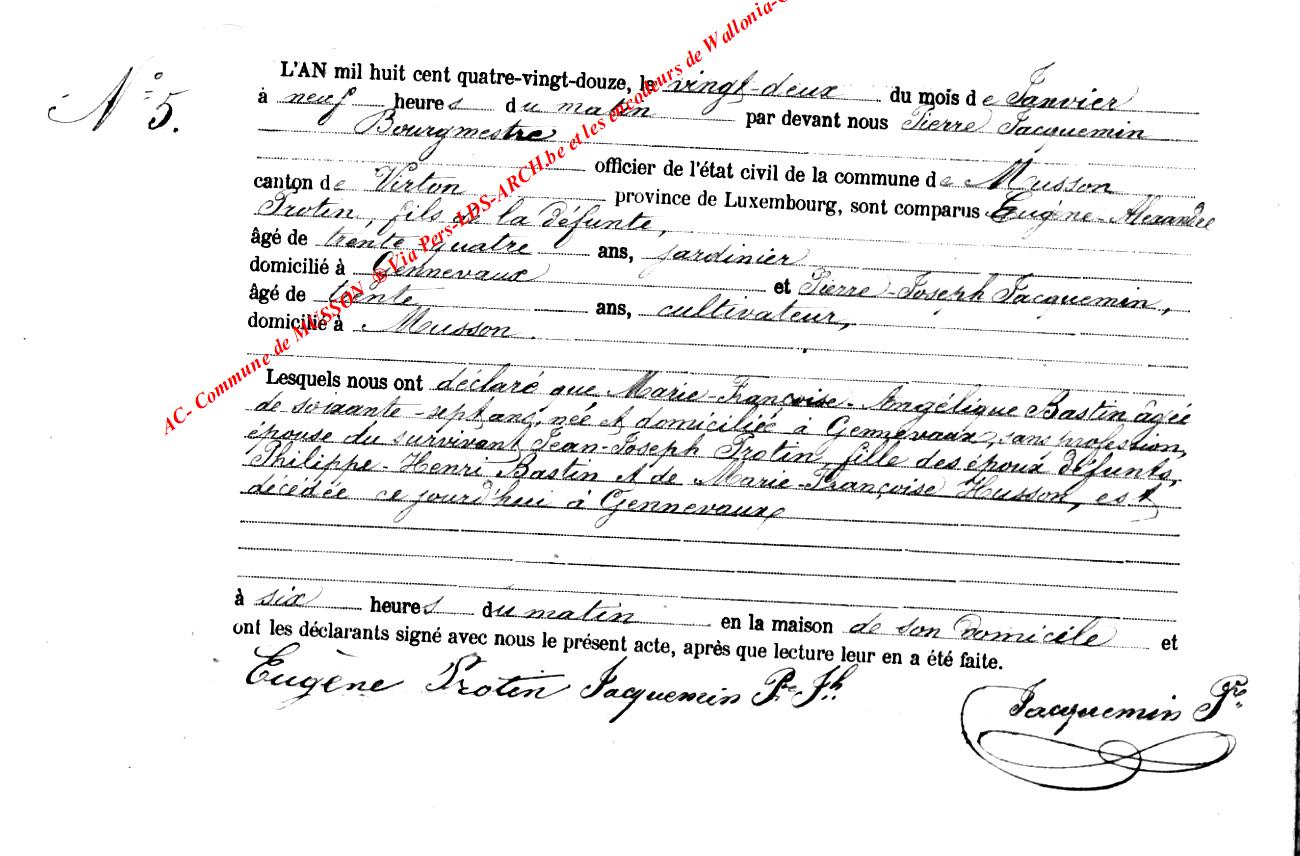 N° 5.
L'AN mil huit cent quatre-vingt-douze, le vingt-deux du mois de Janvier
à neuf heures du matin par devant nous Pierre Jacquemin
Bourgmestre
officier de l'état civil de la commune de Musson
canton de Virton province de Luxembourg, sont comparus Eugène-Alexandre
Protin, fils de la défunte,
âgé de trente-quatre ans, jardinier
domicilié à Gennevaux et Pierre-Joseph Jacquemin,
âgé de trente ans, cultivateur,
domicilié à Musson.
Lesquels nous ont déclaré que Marie-Françoise-Angélique Bastin âgée
de soixante-sept ans, née et domiciliée à Gennevaux, sans profession,
épouse du survivant Jean-Joseph Protin, fille des époux défunts,
Philippe-Henri Bastin et de Marie-Françoise Husson, est
décédée ce jourd'hui à Gennevaux
à six heures du matin en la maison de son domicile et
ont les déclarants signé avec nous le présent acte, après que lecture leur en a été faite.
Eugène Protin Jacquemin Pre Jh.
Jacquemin Pre
AC- Commune de MUSSON ® Via Pers-LDS-ARCH.be et les encodeurs de Wallonia-